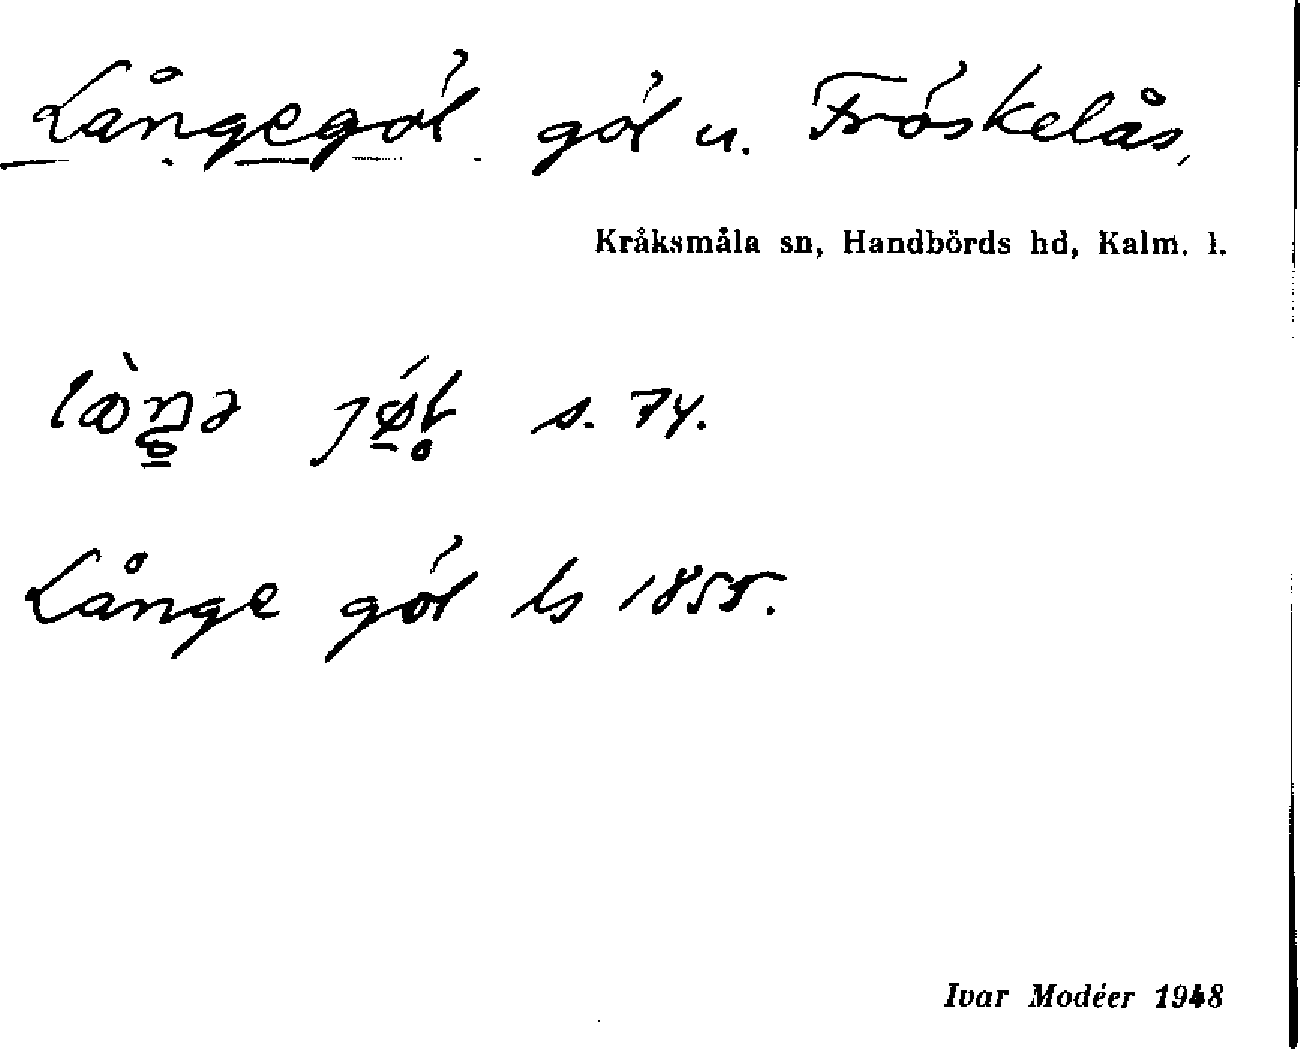 Långegöl göl u. Fröskelås,
Kråksmåla sn, Handbörds hd, Kalm. l.
s. 74.
Långe göl ls 1855.
Ivar Modéer 1948